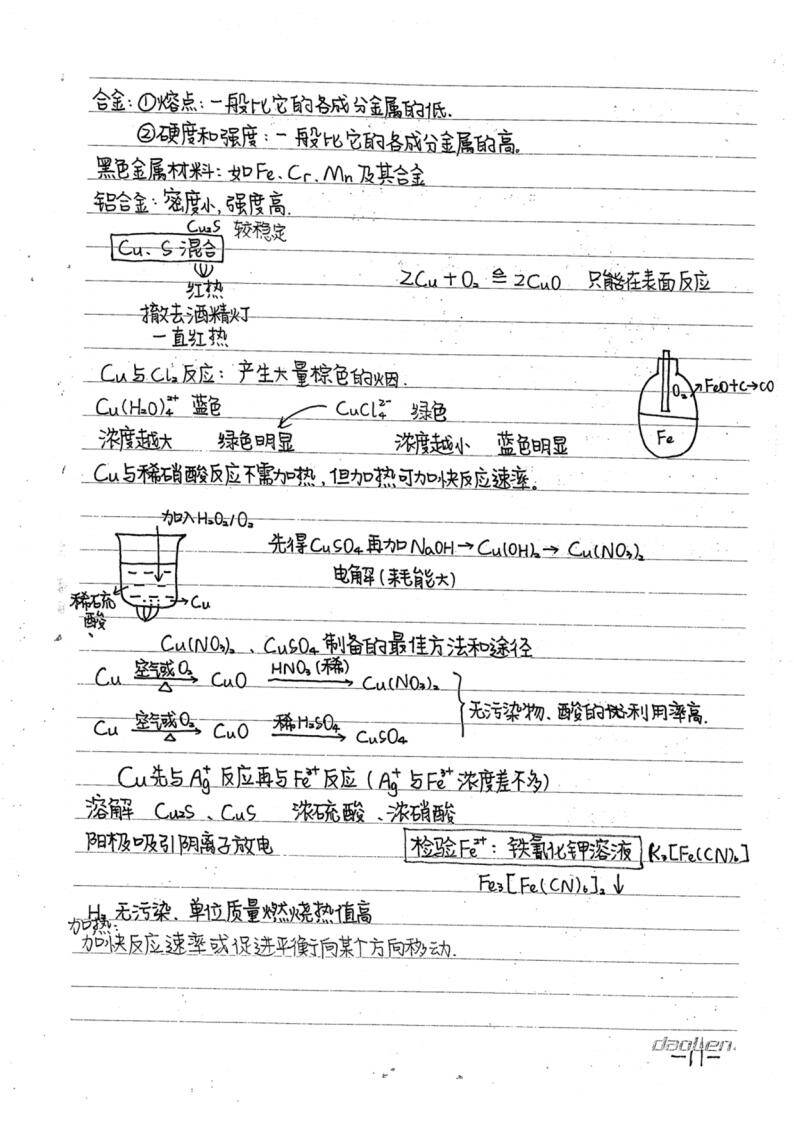 合金：①熔点：一般比它的各成分金属的低.
②硬度和强度：一般比它的各成分金属的高。
黑色金属材料：如Fe、Cr、Mn及其合金
铝合金：密度小,强度高.
Cu₂S 较稳定
Cu、S 混合
红热
撤去酒精灯
一直红热
2Cu + O₂ ≙ 2CuO 只能在表面反应
Cu与Cl₂反应：产生大量棕色的烟.
O₂ FeO+C→CO
Fe
Cu(H₂O)₄²⁺ 蓝色 CuCl₄²⁻ 绿色
浓度越大 绿色明显 浓度越小 蓝色明显
Cu与稀硝酸反应不需加热,但加热可加快反应速率。
加入H₂O₂/O₂
稀硫酸
Cu
先得CuSO₄再加NaOH→Cu(OH)₂→Cu(NO₃)₂
电解(耗能大)
Cu(NO₃)₂、CuSO₄制备的最佳方法和途径
Cu 空气或O₂ △ → CuO HNO₃(稀) → Cu(NO₃)₂
Cu 空气或O₂ △ → CuO 稀H₂SO₄ → CuSO₄
无污染物、酸的利用率高.
Cu先与Ag⁺反应再与Fe³⁺反应(Ag⁺与Fe³⁺浓度差不多)
溶解 Cu₂S、CuS 浓硫酸、浓硝酸
阳极吸引阴离子放电
检验Fe²⁺：铁氰化钾溶液 K₃[Fe(CN)₆]
Fe₃[Fe(CN)₆]₂↓
H₂ 无污染、单位质量燃烧热值高
加热：
加快反应速率或促进平衡向某个方向移动.
daolien.
-11-